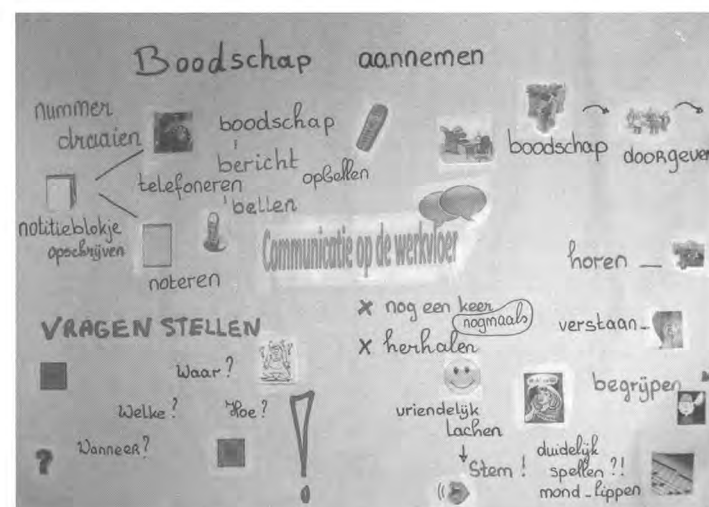 Boodschap aannemen
nummer
draaien
boodschap
bericht
telefoneren
opbellen
bellen
boodschap
doorgeven
notitieblokje
opschrijven
noteren
Communicatie op de werkvloer
horen
VRAGEN STELLEN
x nog een keer
nogmaals
x herhalen
verstaan
Waar?
begrijpen
Welke?
Hoe?
!
vriendelijk
Lachen
Wanneer?
?
Stem!
duidelijk
spellen?!
mond-lippen